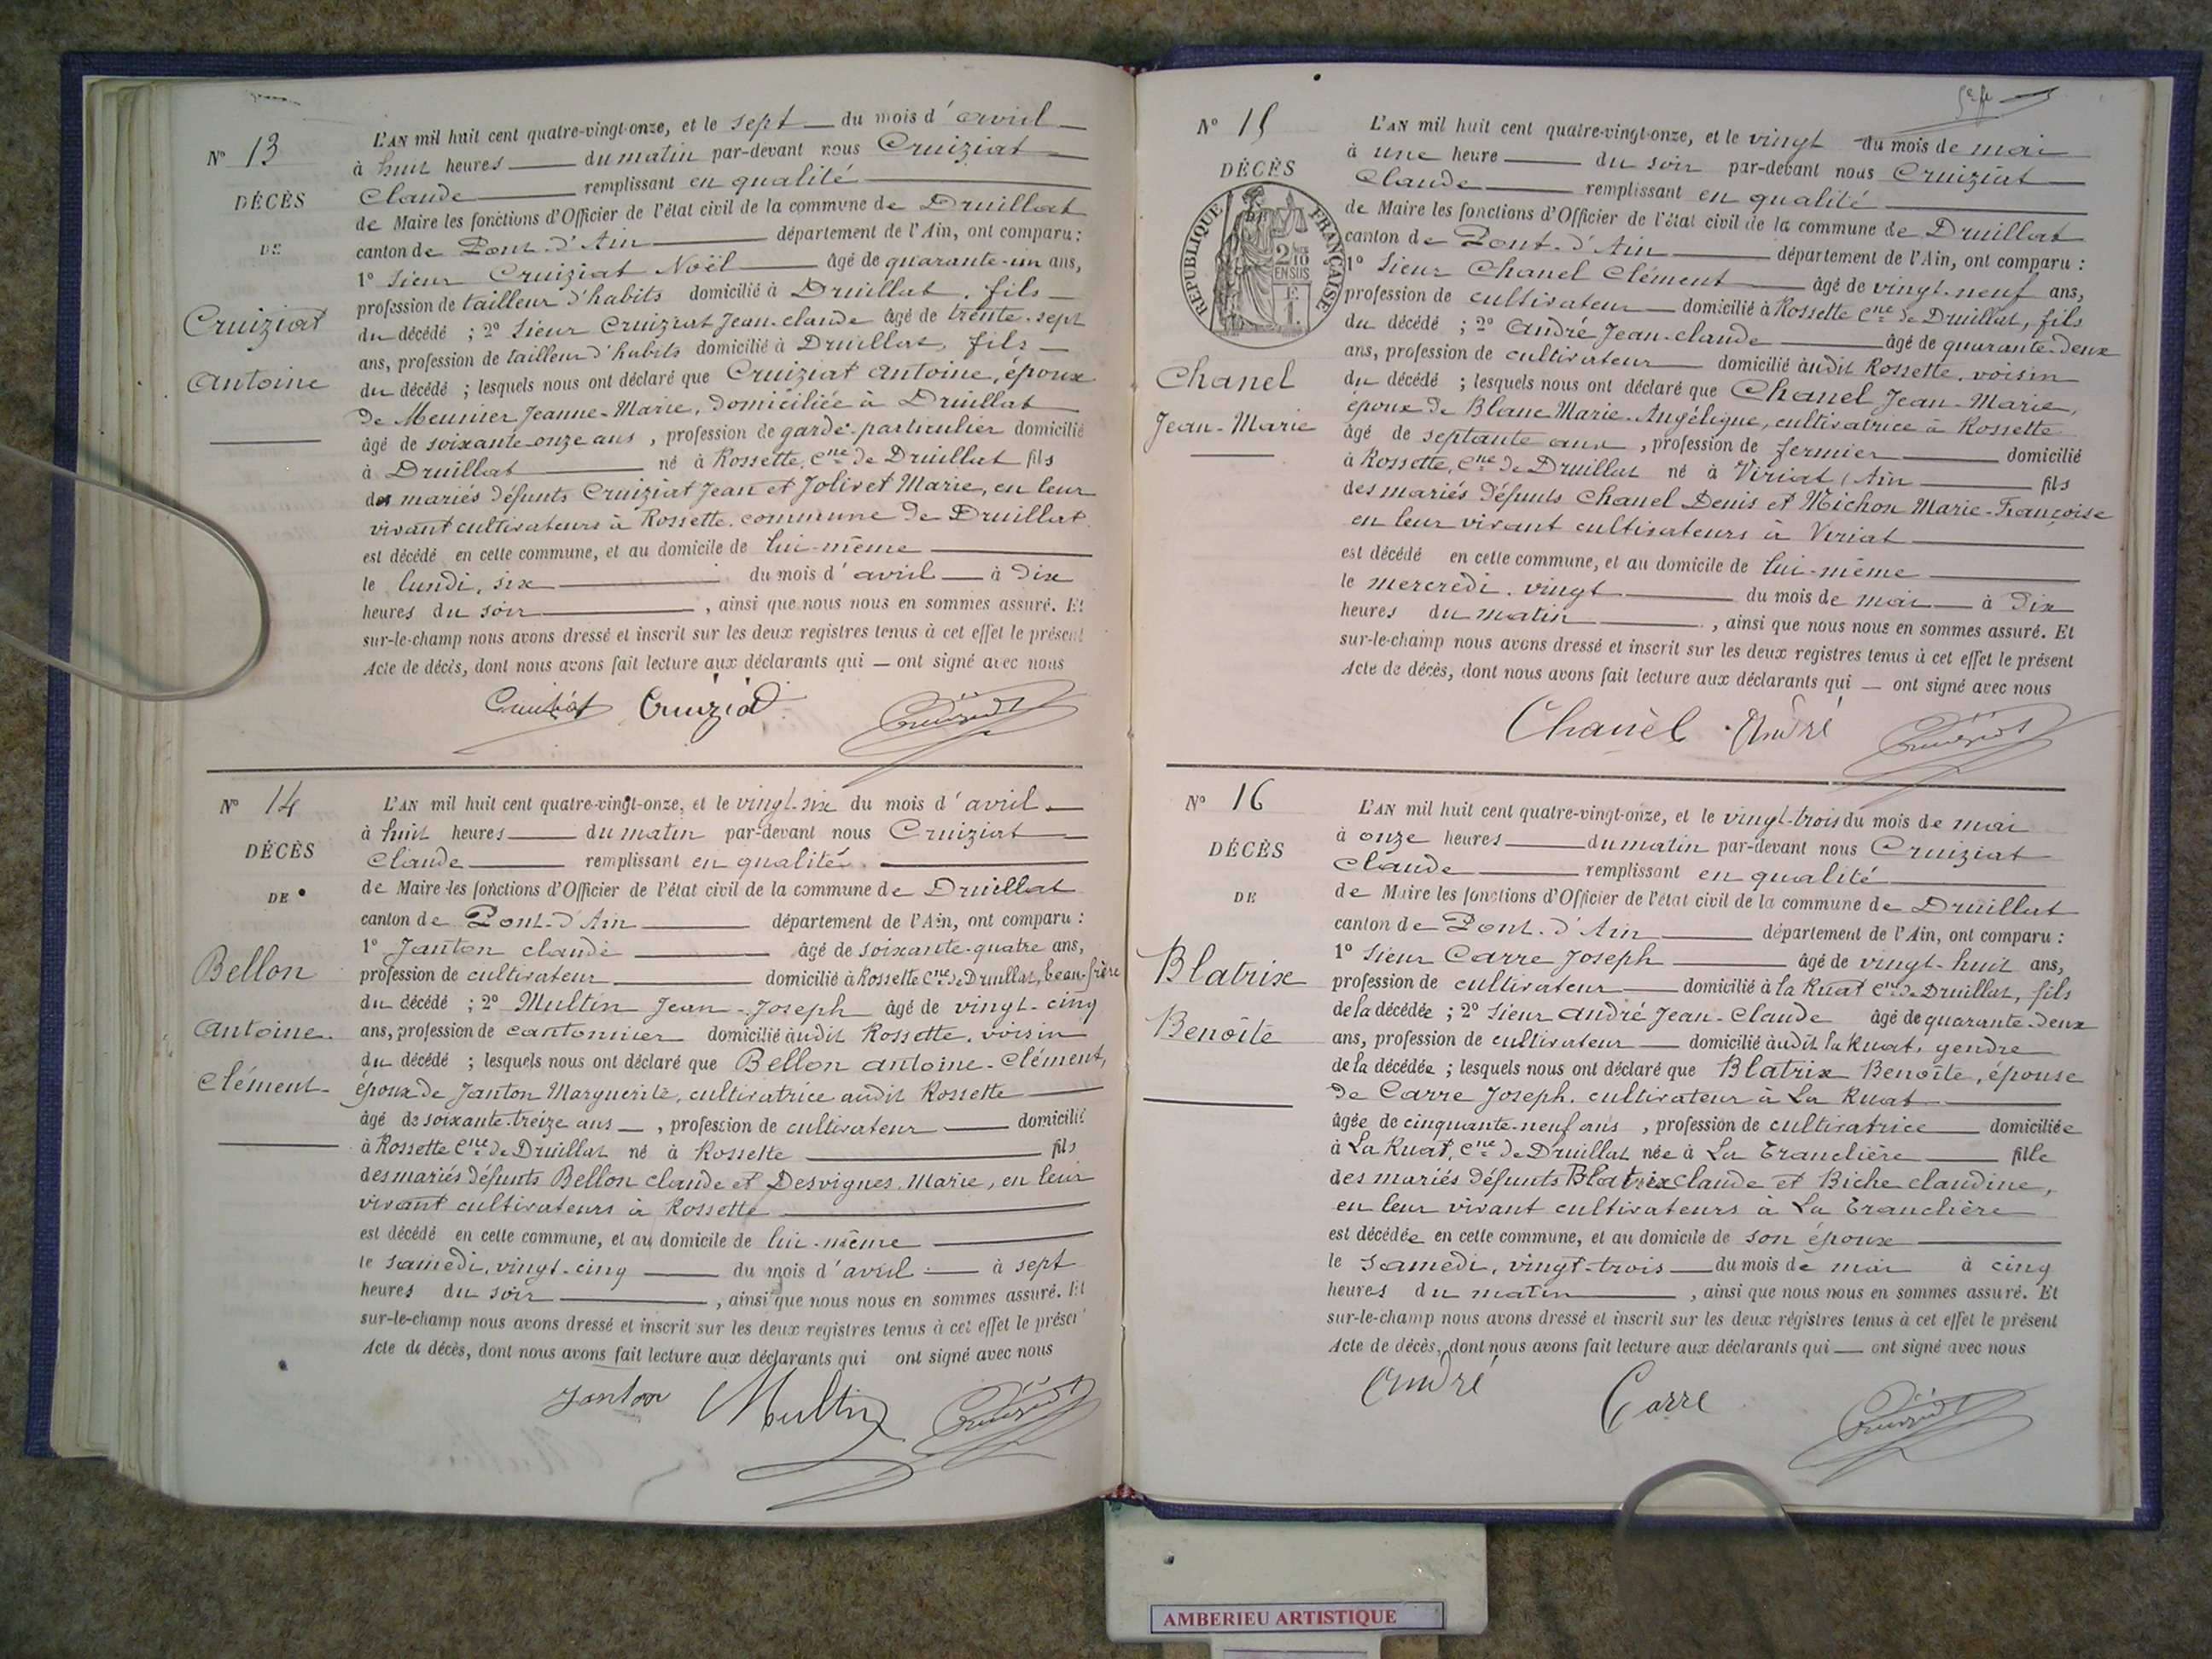 N° 13
DÉCÈS
DE
Cruiziat
Antoine
L'AN mil huit cent quatre-vingt-onze, et le sept du mois d'avril
à huit heures du matin par-devant nous Cruiziat
Claude remplissant en qualité
de Maire les fonctions d'Officier de l'état civil de la commune de Druillat
canton de Pont-d'Ain département de l'Ain, ont comparu :
1° Sieur Cruiziat Noël âgé de quarante-un ans,
profession de tailleur d'habits domicilié à Druillat, fils
du décédé ; 2° Sieur Cruiziat Jean-Claude âgé de trente-sept
ans, profession de tailleur d'habits domicilié à Druillat, fils
du décédé ; lesquels nous ont déclaré que Cruiziat Antoine, époux
de Meunier Jeanne-Marie, domiciliée à Druillat
âgé de soixante-onze ans, profession de garde-particulier domicilié
à Druillat né à Rossette, Cne de Druillat fils
des mariés défunts Cruiziat Jean et Jolivet Marie, en leur
vivant cultivateurs à Rossette, commune de Druillat
est décédé en cette commune, et au domicile de lui-même
le lundi, six du mois d'avril à dix
heures du soir, ainsi que nous nous en sommes assuré. Et
sur-le-champ nous avons dressé et inscrit sur les deux registres tenus à cet effet le présent
Acte de décès, dont nous avons fait lecture aux déclarants qui — ont signé avec nous
Cruiziat Cruiziat Cruiziat
N° 14
DÉCÈS
DE
Bellon
Antoine-
Clément-
L'AN mil huit cent quatre-vingt-onze, et le vingt-six du mois d'avril
à huit heures du matin par-devant nous Cruiziat
Claude remplissant en qualité
de Maire les fonctions d'Officier de l'état civil de la commune de Druillat
canton de Pont-d'Ain département de l'Ain, ont comparu :
1° Janton Claude âgé de soixante-quatre ans,
profession de cultivateur domicilié à Rossette Cne de Druillat, beau-frère
du décédé ; 2° Multin Jean-Joseph âgé de vingt-cinq
ans, profession de cantonnier domicilié audit Rossette, voisin
du décédé ; lesquels nous ont déclaré que Bellon Antoine-Clément,
époux de Janton Marguerite, cultivatrice audit Rossette
âgé de soixante-treize ans, profession de cultivateur domicilié
à Rossette Cne de Druillat né à Rossette fils
des mariés défunts Bellon Claude et Desvignes Marie, en leur
vivant cultivateurs à Rossette
est décédé en cette commune, et au domicile de lui-même
le samedi, vingt-cinq du mois d'avril à sept
heures du soir, ainsi que nous nous en sommes assuré. Et
sur-le-champ nous avons dressé et inscrit sur les deux registres tenus à cet effet le présent
Acte de décès, dont nous avons fait lecture aux déclarants qui ont signé avec nous
Janton Multin Cruiziat
N° 15
DÉCÈS
RÉPUBLIQUE FRANÇAISE
2/10
EN SUS
Chanel
Jean-Marie
L'AN mil huit cent quatre-vingt-onze, et le vingt du mois de mai
à une heure du soir par-devant nous Cruiziat
Claude remplissant en qualité
de Maire les fonctions d'Officier de l'état civil de la commune de Druillat
canton de Pont-d'Ain département de l'Ain, ont comparu :
1° Sieur Chanel Clément âgé de vingt-neuf ans,
profession de cultivateur domicilié à Rossette Cne de Druillat, fils
du décédé ; 2° André Jean-Claude âgé de quarante-deux
ans, profession de cultivateur domicilié audit Rossette, voisin
du décédé ; lesquels nous ont déclaré que Chanel Jean-Marie,
époux de Blanc Marie-Angélique, cultivatrice à Rossette
âgé de septante ans, profession de fermier domicilié
à Rossette, Cne de Druillat né à Viriat (Ain fils
des mariés défunts Chanel Denis et Michon Marie-Françoise
en leur vivant cultivateurs à Viriat
est décédé en cette commune, et au domicile de lui-même
le mercredi, vingt du mois de mai à dix
heures du matin, ainsi que nous nous en sommes assuré. Et
sur-le-champ nous avons dressé et inscrit sur les deux registres tenus à cet effet le présent
Acte de décès, dont nous avons fait lecture aux déclarants qui — ont signé avec nous
Chanel André Cruiziat
N° 16
DÉCÈS
DE
Blatrix
Benoîte
L'AN mil huit cent quatre-vingt-onze, et le vingt-trois du mois de mai
à onze heures du matin par-devant nous Cruiziat
Claude remplissant en qualité
de Maire les fonctions d'Officier de l'état civil de la commune de Druillat
canton de Pont-d'Ain département de l'Ain, ont comparu :
1° Sieur Carre Joseph âgé de vingt-huit ans,
profession de cultivateur domicilié à la Ruat Cne de Druillat, fils
de la décédée ; 2° Sieur André Jean-Claude âgé de quarante-deux
ans, profession de cultivateur domicilié audit la Ruat, gendre
de la décédée ; lesquels nous ont déclaré que Blatrix Benoîte, épouse
de Carre Joseph, cultivateur à La Ruat
âgée de cinquante-neuf ans, profession de cultivatrice domiciliée
à La Ruat, Cne de Druillat née à La Tranclière fille
des mariés défunts Blatrix Claude et Biche Claudine,
en leur vivant cultivateurs à La Tranclière
est décédée en cette commune, et au domicile de son époux
le samedi, vingt-trois du mois de mai à cinq
heures du matin, ainsi que nous nous en sommes assuré. Et
sur-le-champ nous avons dressé et inscrit sur les deux régistres tenus à cet effet le présent
Acte de décès, dont nous avons fait lecture aux déclarants qui — ont signé avec nous
André Carre Cruiziat
AMBERIEU ARTISTIQUE